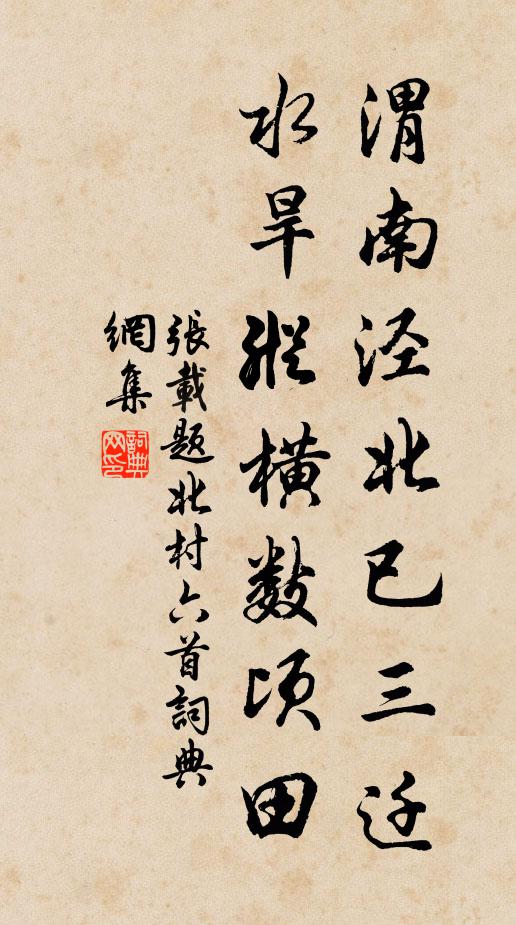 渭南泾北已三迁
水旱縱橫数顷田
張載题北村六首詞典
網集
詞典
网印